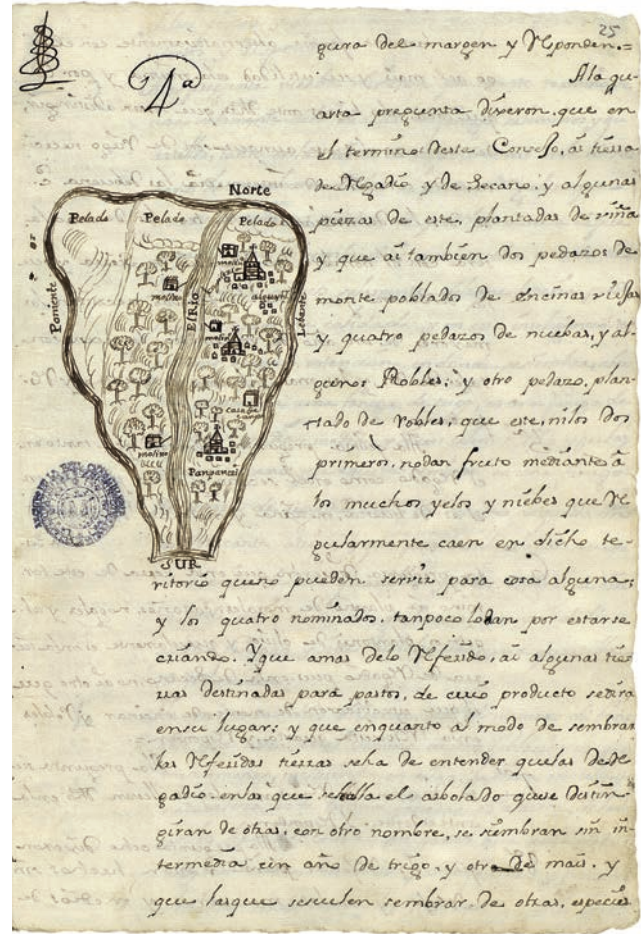 25
gura del margen y Responden.=
4ª
A la qu-
arta pregunta dixeron, que en
el termino deste Conzejo, ai tierra
de Regadio y de Secano, y algunas
piezas de este, plantadas de viña
y que ai tambien dos pedazos de
monte poblados de encinas viejas
y quatro pedazos de nuebas, y al-
gunos Robles; y otro pedazo, plan-
tado de robles, que este, ni los dos
primeros, no dan fruto mediante a
los muchos yelos y niebes que Re
gularmente caen en dicho te-
ritorio que no pueden servir para cosa alguna;
y los quatro nominados, tampoco lo dan por estarse
criando. Y que amas de lo Referido, ai algunas tier
ras destinadas para pastos, de cuio producto se dira
en su lugar; y que en quanto al modo de sembrar
las Referidas tierras se ha de entender que las de Re
gadio en las que se halla el arbolado que se distin-
giran de otras, con otro nombre, se siembran sin in-
termedia un año de trigo, y otro de mais, y
que las que se suelen sembrar de otras, especies
Norte
Pelado
Pelado
Pelado
Poniente
El Rio
Lebante
molino
molino
molino
molino
SUR